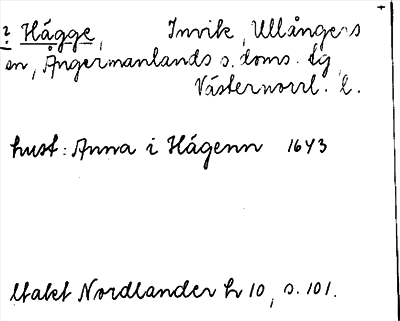 2 Hägge, Invik, Ullångers
sn, Ångermanlands s. doms. lg,
Västernorrl. l.
hust: Anna i Hägenn 1643
Utakt Nordlander h 10, s. 101.